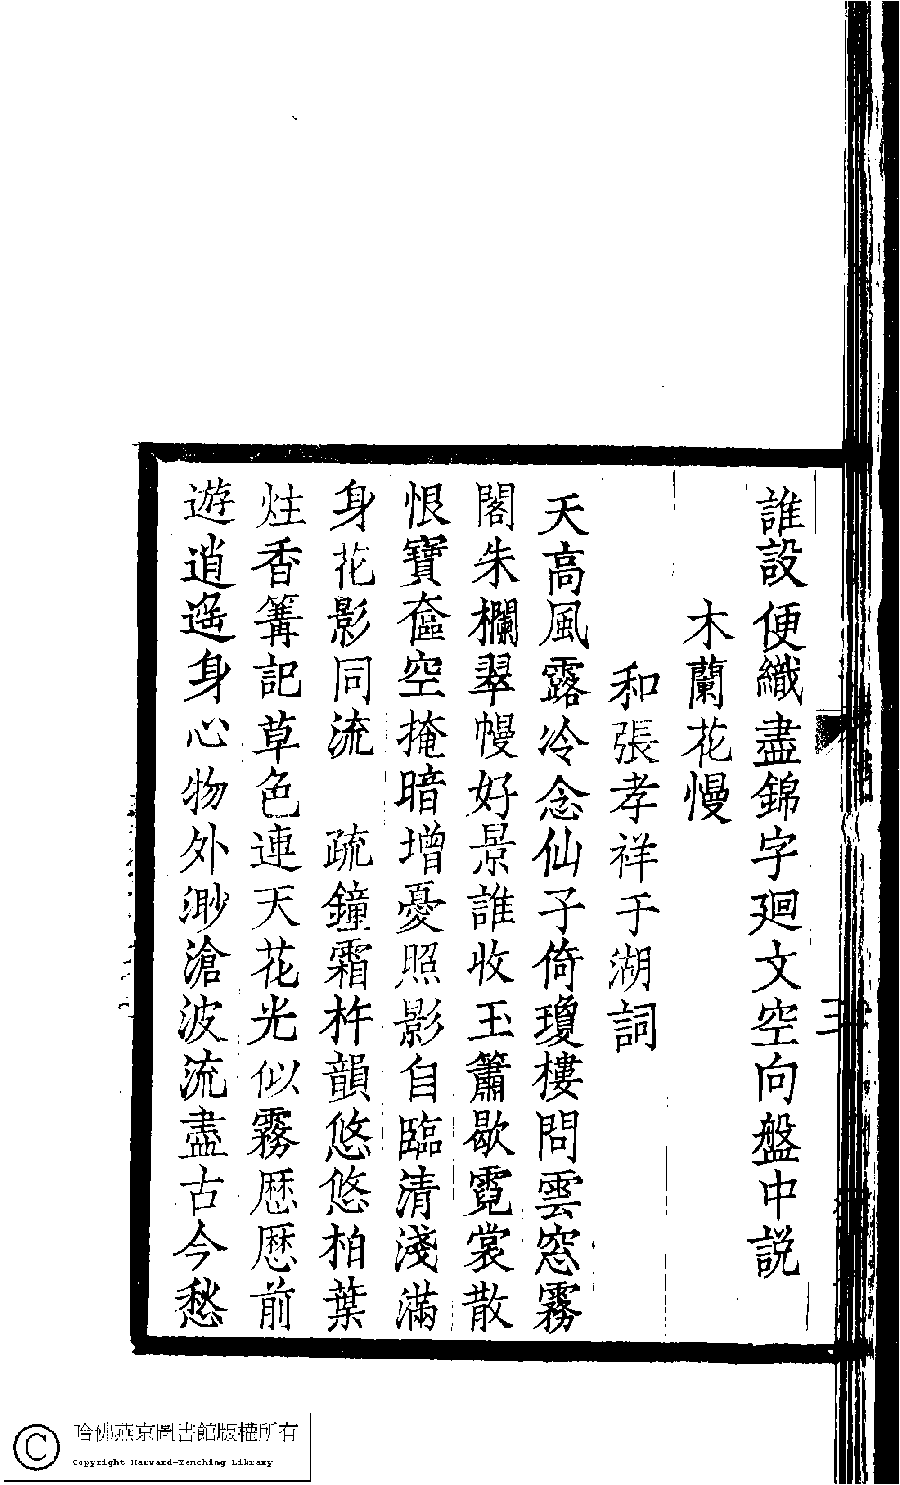 誰設便織盡錦字廻文空向盤中説
木蘭花慢
和張孝祥于湖詞
天高風露冷念仙子倚瓊樓問雲窓霧
閣朱欄翠幔好景誰收玉簫歇霓裳散
恨寶奩空掩暗增憂照影自臨清淺滿
身花影同流　疏鐘霜杵韻悠悠柏葉
炷香篝記草色連天花光似霧歷歷前
遊逍遥身心物外渺滄波流盡古今愁
三
哈佛燕京圖書館版權所有
Copyright Harvard-Yenching Library